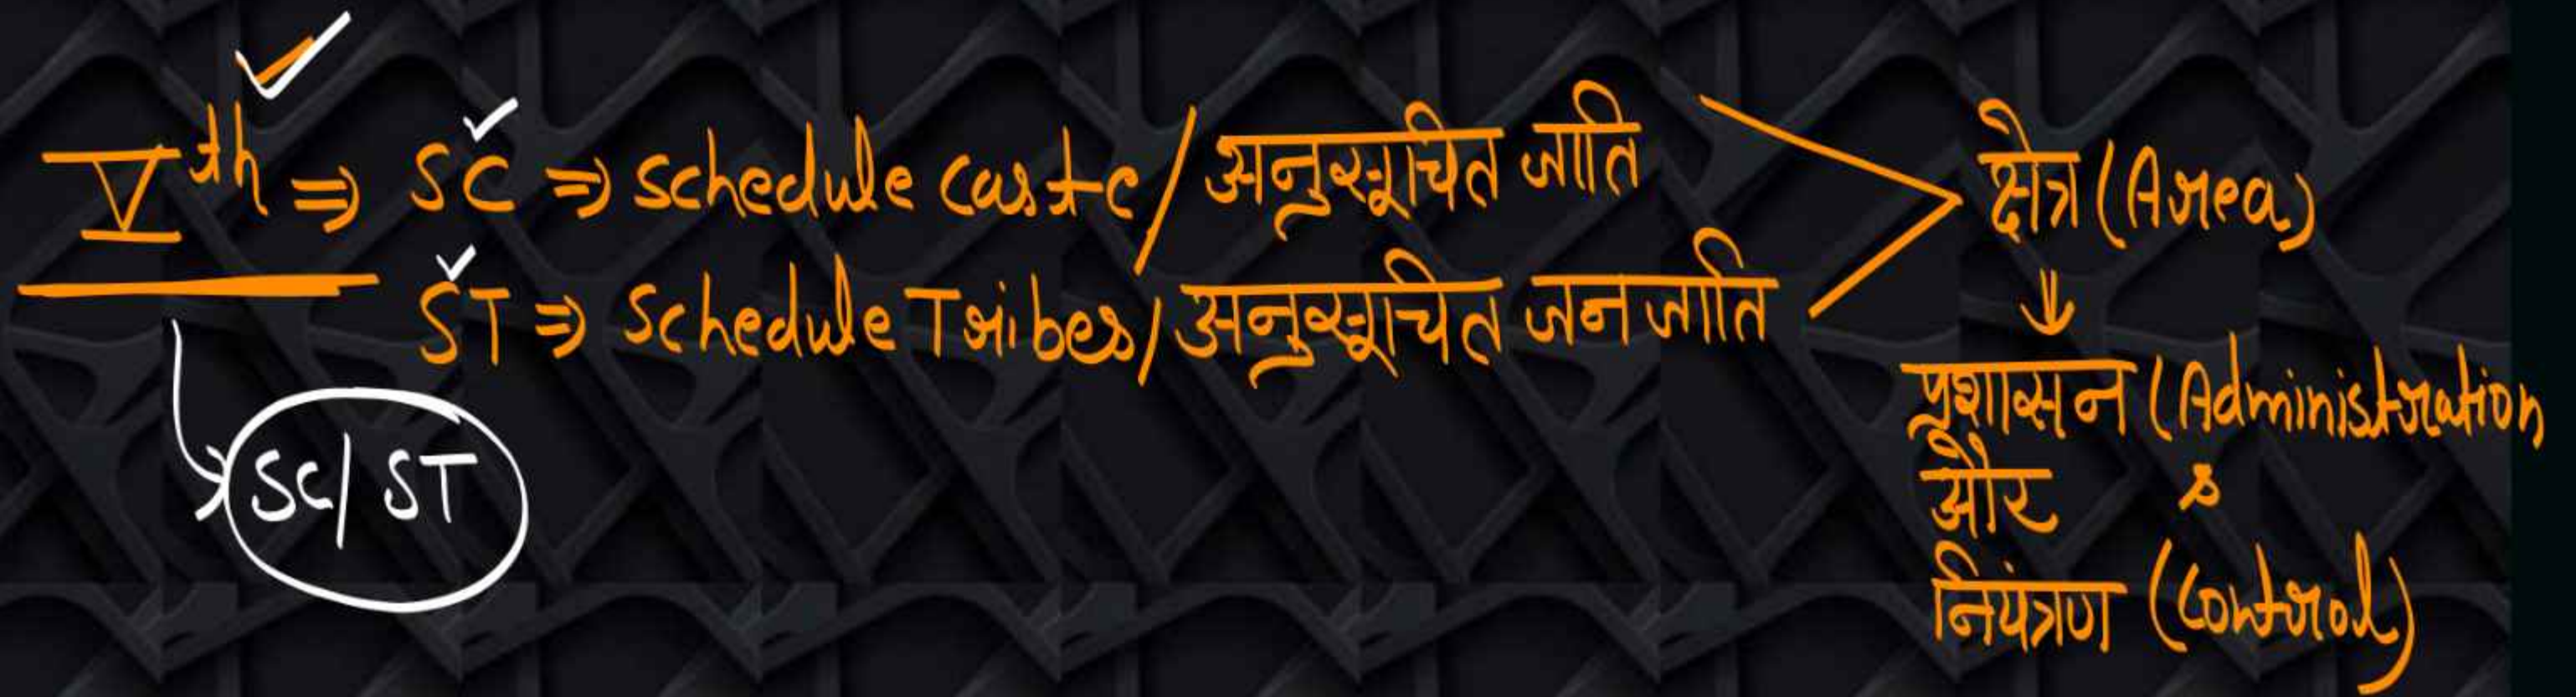 Vth ⇒ SC ⇒ Schedule Caste / अनुसूचित जाति
ST ⇒ Schedule Tribes / अनुसूचित जनजाति
SC/ST
क्षेत्र (Area)
⇓
प्रशासन (Administration
और &
नियंत्रण (Control)